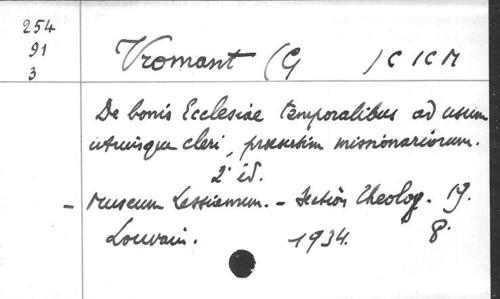 254
91
3
Vromant (G ) C I C M
De bonis Ecclesiae temporalibus ad usum
utriusque cleri, praesertim missionariorum.
2 éd.
- Museum Lessianum. - Section Theolog. 19.
Louvain. 1934. 8.